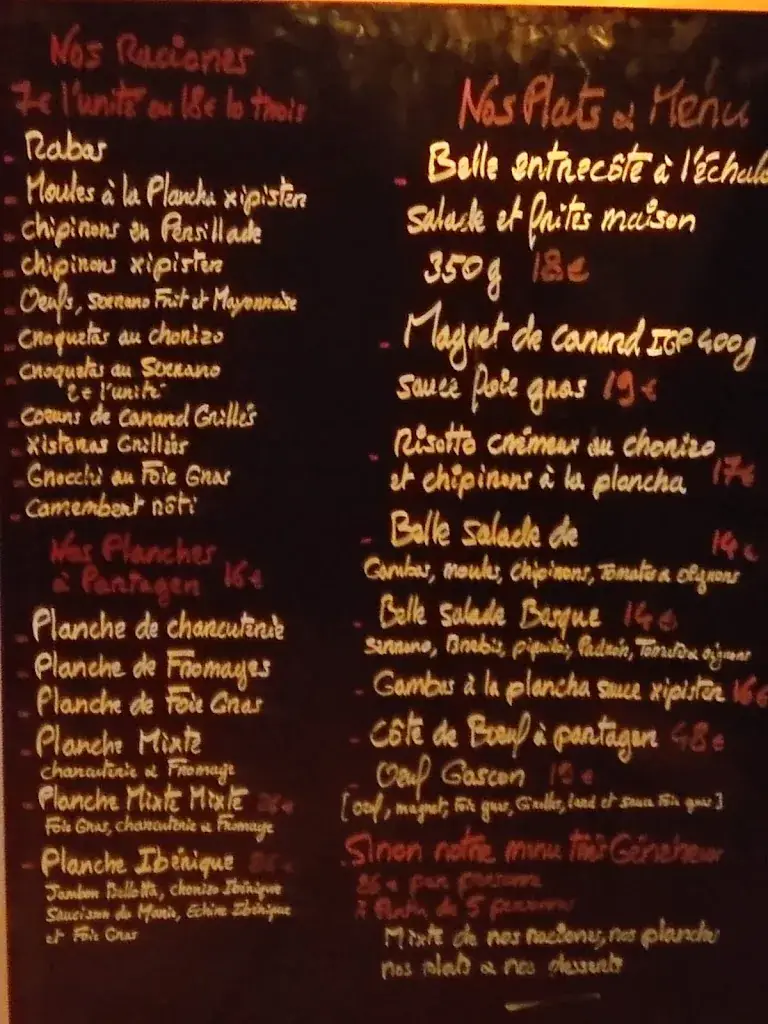 Nos Raciones
7€ l'unité ou 18€ la trois
- Rabas
- Moules à la Plancha xipister
- chipirons en Persillade
- chipirons xipister
- Oeufs, serrano Frit et Mayonnaise
- croquetas au chorizo
- croquetas au Serrano
2€ l'unité
- coeurs de canard Grillés
- xistoras Grillées
- Gnocchi au Foie Gras
- Camembert rôti
Nos Planches
à Partager 16€
- Planche de charcuterie
- Planche de Fromages
- Planche de Foie Gras
- Planche Mixte
charcuterie & Fromage
- Planche Mixte Mixte
Foie Gras, charcuterie & Fromage
- Planche Ibérique
Jambon Bellotta, chorizo Ibérique
Saucisson de Mania, Echine Ibérique
et Foie Gras
Nos Plats & Menu
- Belle entrecôte à l'échalo
salade et frites maison
350g 18€
- Magret de canard IGP 400g
sauce foie gras 19€
- Risotto crémeux au chorizo
et chipirons à la plancha 17€
- Belle salade de 14€
Gambas, moules, chipirons, Tomates & oignons
- Belle salade Basque 14€
Serrano, Brebis, piquillos, Padrón, Tomates & oignons
- Gambas à la plancha sauce xipister 16€
- Côte de Boeuf à partager 48€
- Oeuf Gascon
[oeuf, magret, foie gras, Girolles, lard et sauce foie gras]
Sinon notre menu très Généreux
26€ par personne
à Partir de 5 personnes
Mixte de nos raciones, nos planches
nos plats & nos desserts